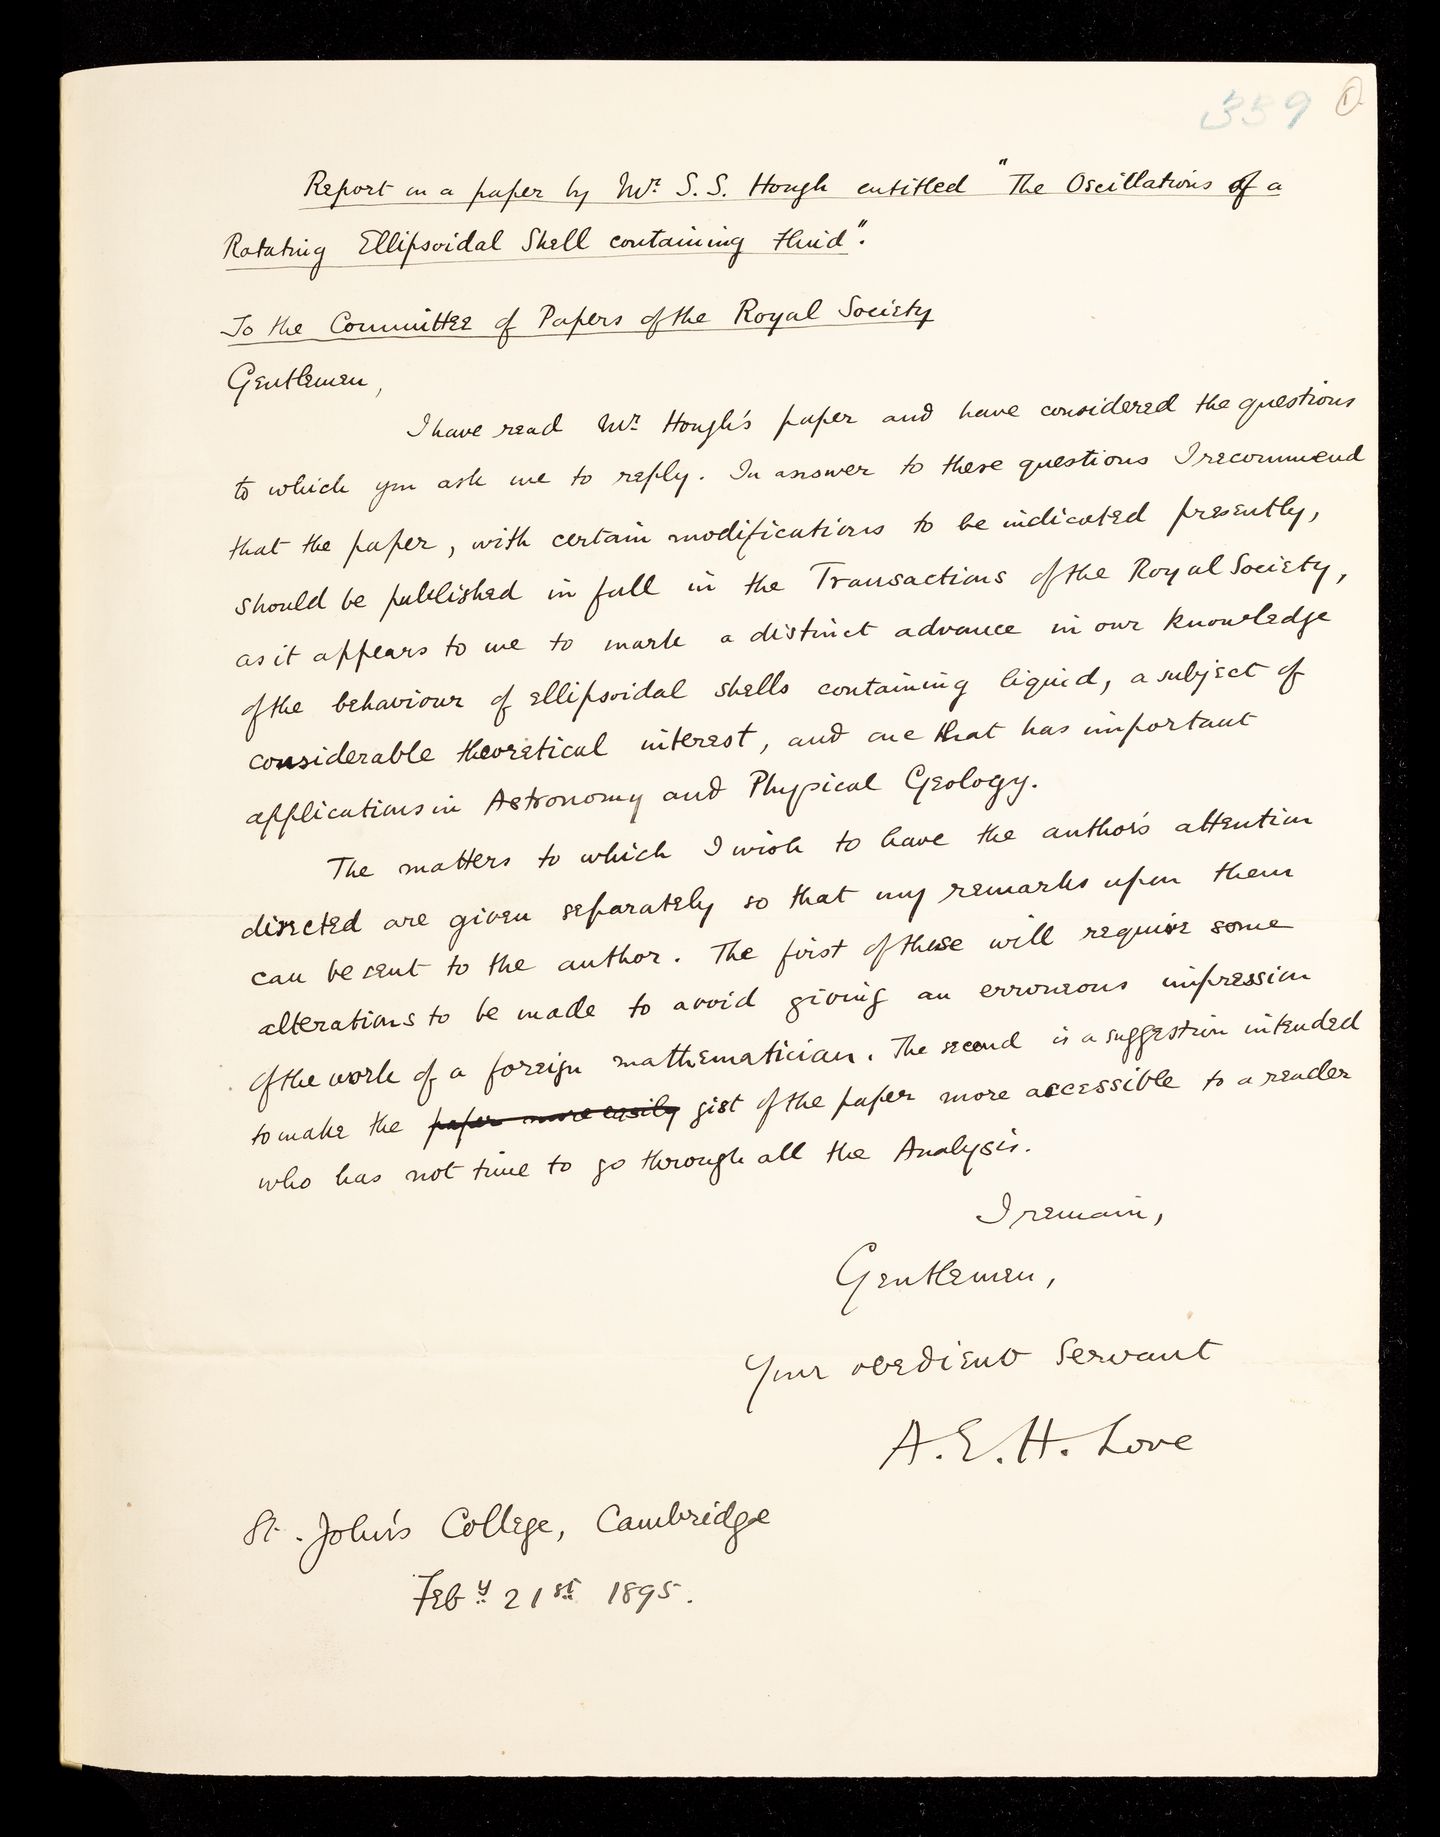 359 1
Report on a paper by Mr. S. S. Hough entitled "The Oscillations of a
Rotating Ellipsoidal Shell containing fluid".
To the Committee of Papers of the Royal Society
Gentlemen,
I have read Mr. Hough's paper and have considered the questions
to which you ask me to reply. In answer to these questions I recommend
that the paper, with certain modifications to be indicated presently,
should be published in full in the Transactions of the Royal Society,
as it appears to me to mark a distinct advance in our knowledge
of the behaviour of ellipsoidal shells containing liquid, a subject of
considerable theoretical interest, and one that has important
applications in Astronomy and Physical Geology.
The matters to which I wish to have the author's attention
directed are given separately so that my remarks upon them
can be sent to the author. The first of these will require some
alterations to be made to avoid giving an erroneous impression
of the work of a foreign mathematician. The second is a suggestion intended
to make the paper more easily gist of the paper more accessible to a reader
who has not time to go through all the Analysis.
I remain,
Gentlemen,
Your obedient Servant
A. E. H. Love
St. John's College, Cambridge
Feby 21st 1895.